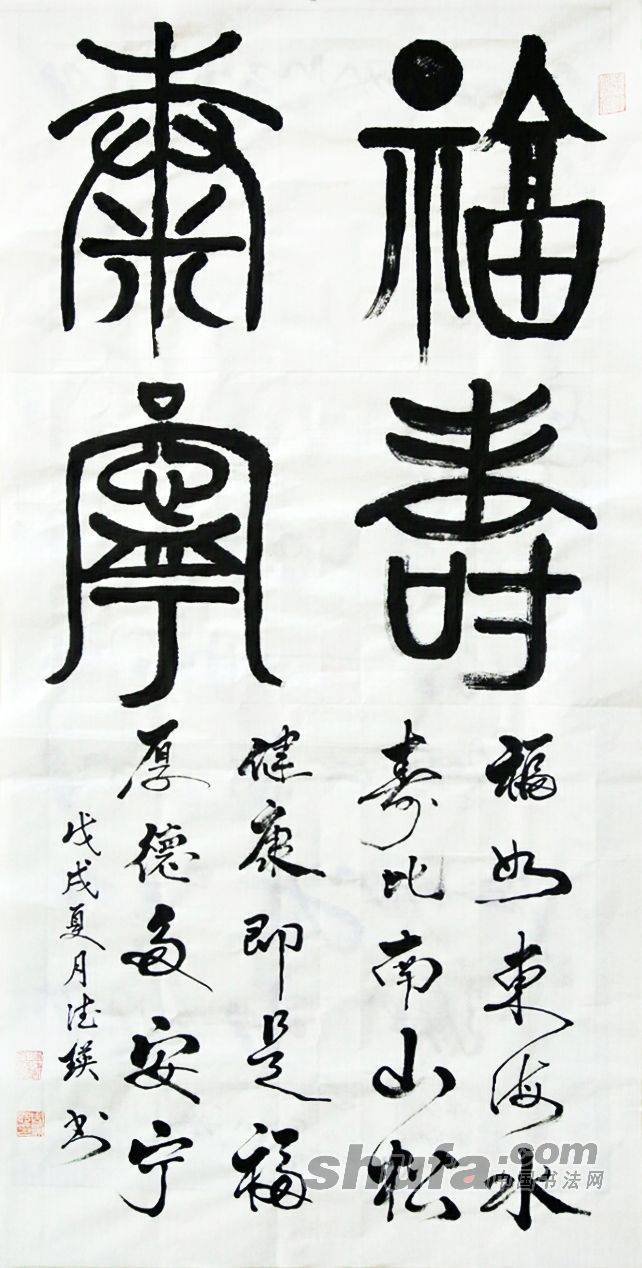 福壽
康寧
福如東海水
寿比南山松
健康即是福
厚德多安宁
戊戌夏月德瑛书
shufa.com
中国书法网